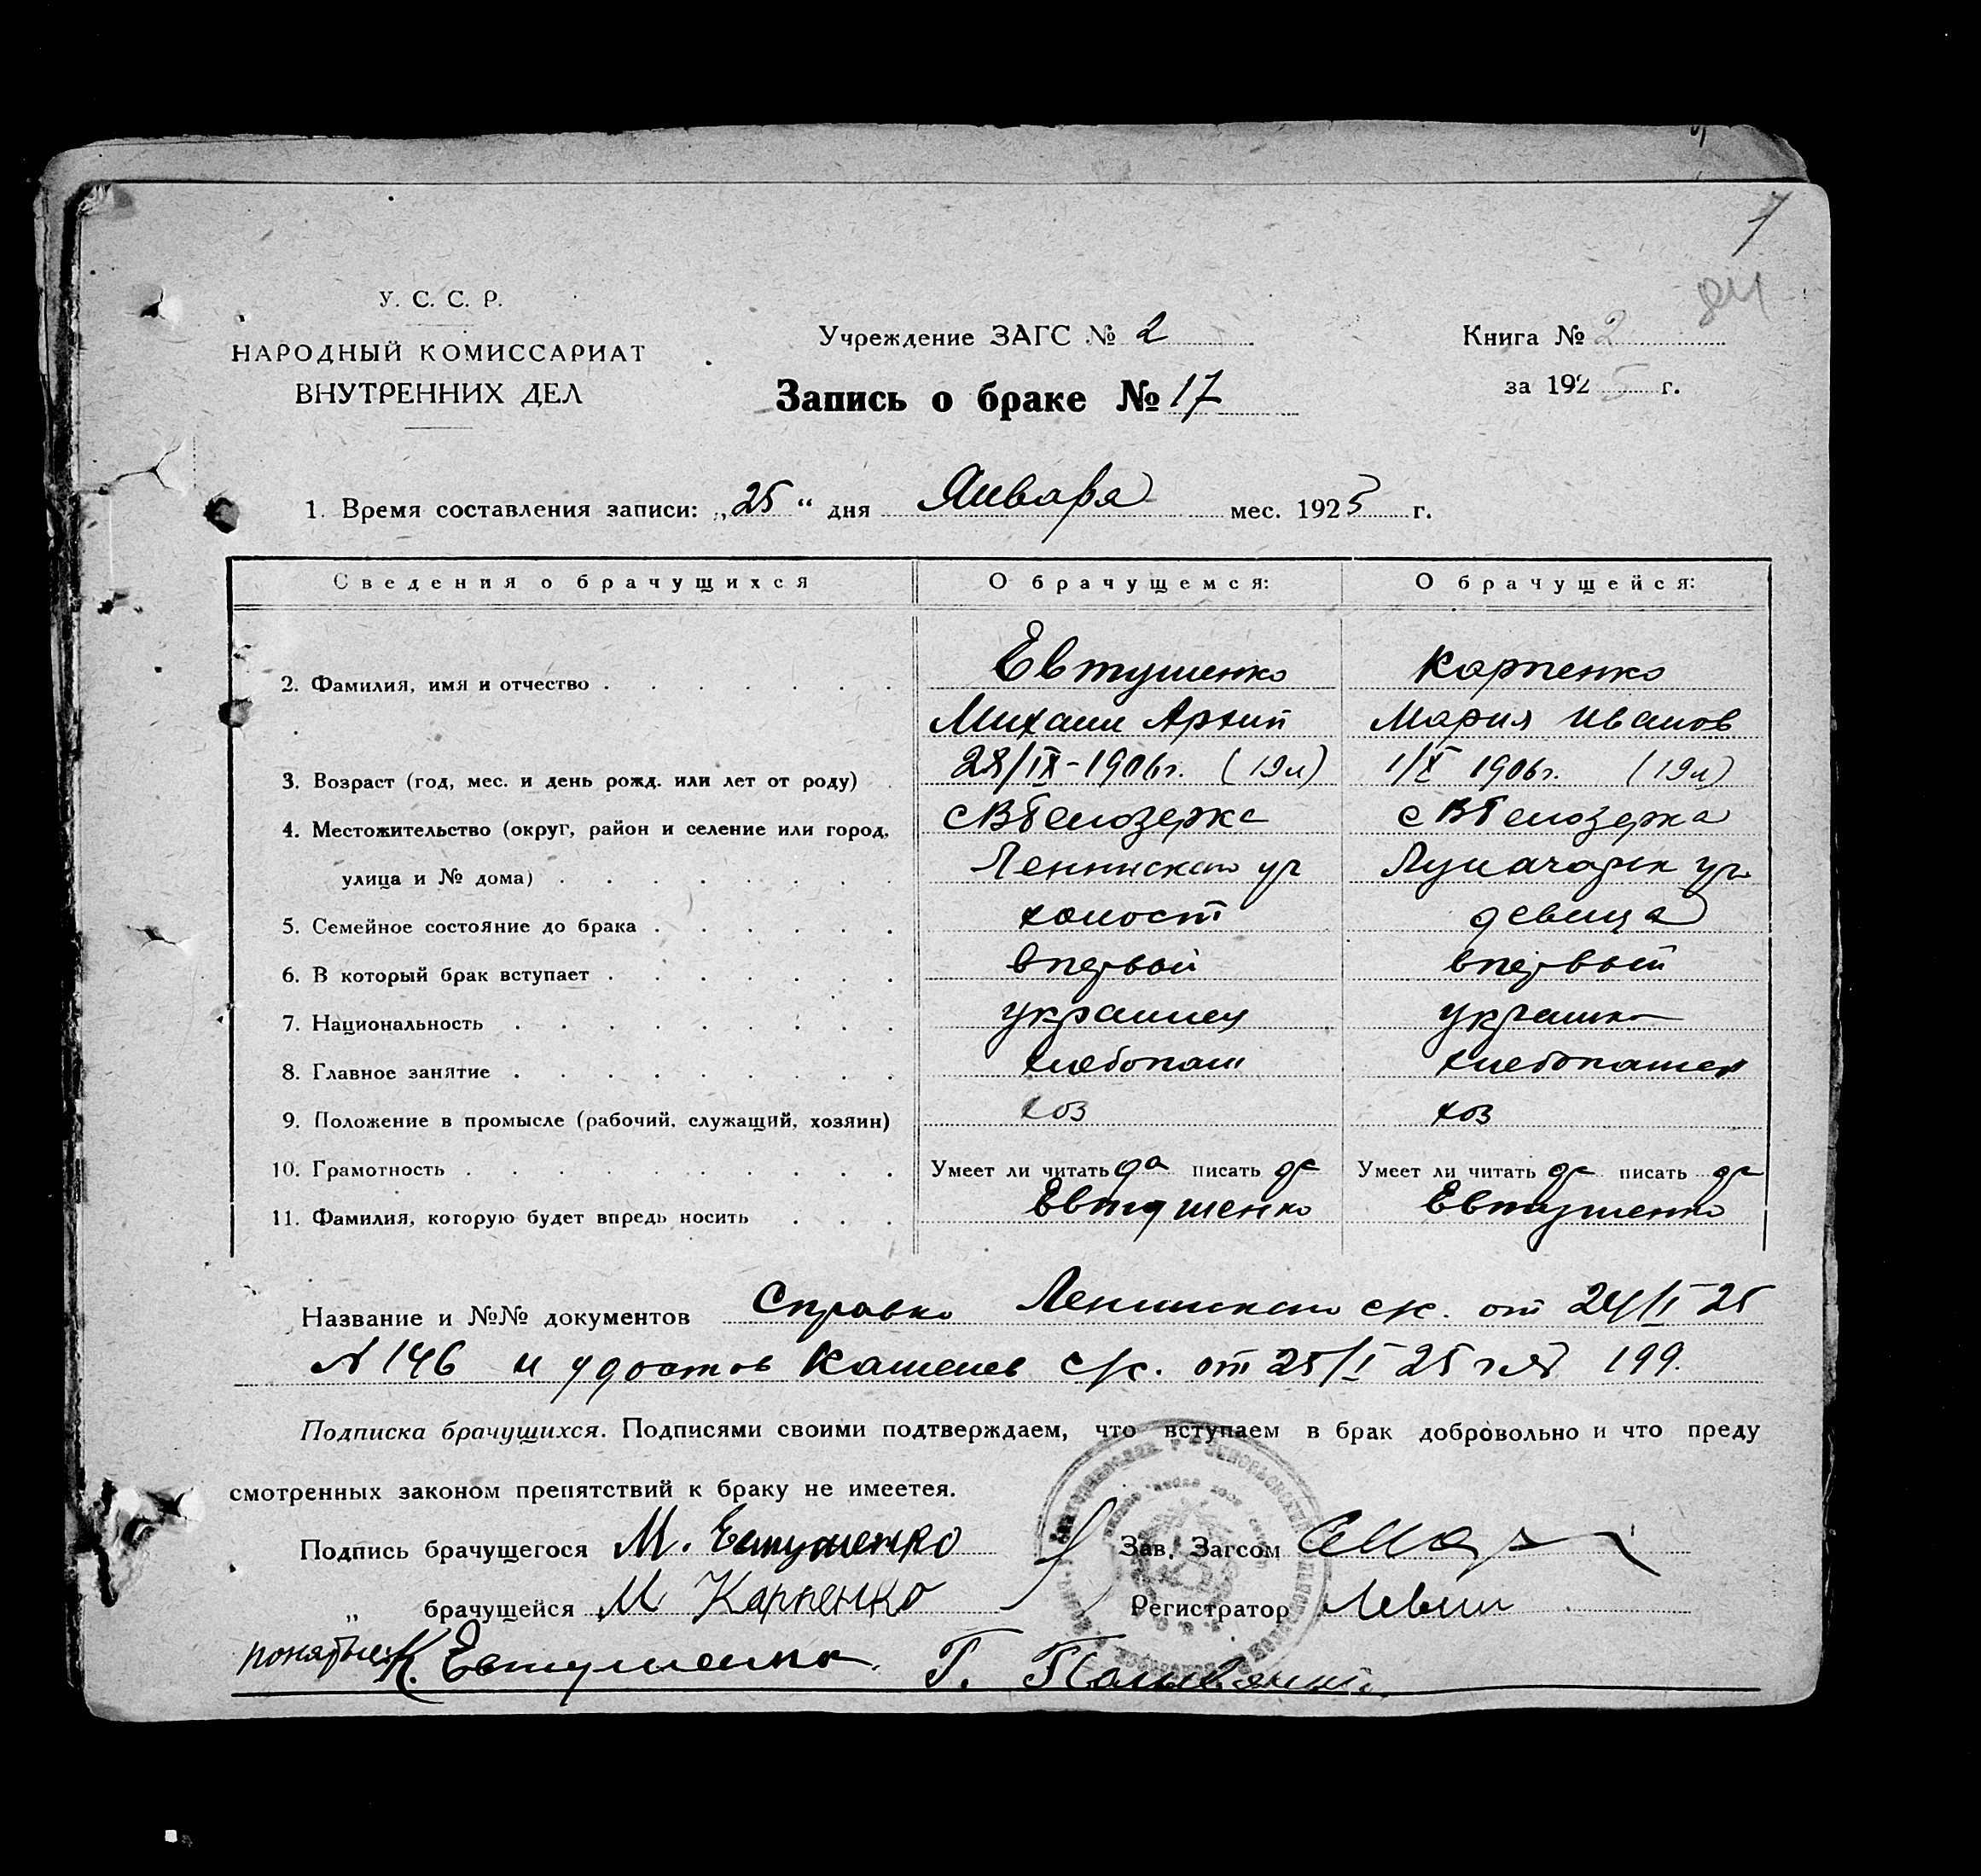 У. С. С. Р.
НАРОДНЫЙ КОМИССАРИАТ
ВНУТРЕННИХ ДЕЛ
Учреждение ЗАГС № 2
Запись о браке № 17
Книга № 2
за 1925 г.
1. Время составления записи: „25“ дня Января мес. 1925 г.
Сведения о брачущихся О брачущемся: О брачущейся:
2. Фамилия, имя и отчество Евтушенко Карпенко
Михаил Архип Мария Иванов
3. Возраст (год, мес. и день рожд. или лет от роду) 28/IX-1906г. (19л) 1/X 1906г. (19л)
4. Местожительство (округ, район и селение или город, с В Белозерка с В Белозерка
улица и № дома) Ленинского ул Луначарск ул
5. Семейное состояние до брака холост девица
6. В который брак вступает впервой впервый
7. Национальность украинец украинка
8. Главное занятие хлебопаш хлебопашец
9. Положение в промысле (рабочий, служащий, хозяин) хоз хоз
10. Грамотность Умеет ли читать да писать да Умеет ли читать да писать да
11. Фамилия, которую будет впредь носить Евтушенко Евтушенко
Название и №№ документов Справка Ленинского с/с. от 24/I 25
№ 146 и удостов с/с. от 25/I 25 г № 199.
Подписка брачущихся. Подписями своими подтверждаем, что вступаем в брак добровольно и что преду
смотренных законом препятствий к браку не имеетея.
Подпись брачущегося М. Евтушенко Зав. Загсом
„ брачущейся М Карпенко Регистратор Левин
понятые К. Евтушенко. Г.